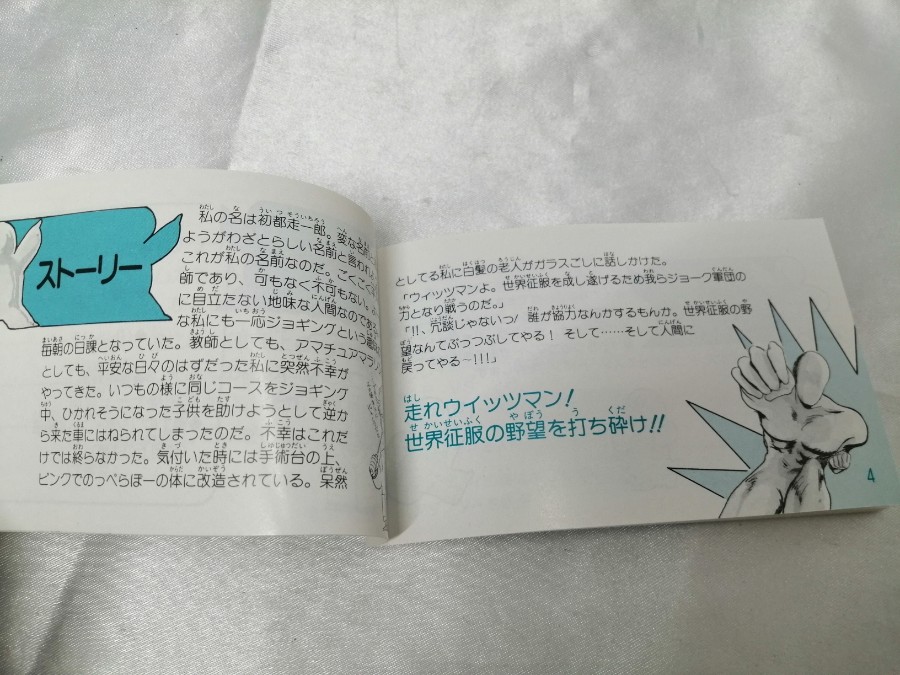 ストーリー
私の名は初都走一郎。変な名前
ようがわざとらしい名前と言われ
これが私の名前なのだ。ごくごく
師であり、可もなく不可もない、
に目立たない地味な人間なのであ
な私にも一応ジョギングという
毎朝の日課となっていた。教師としても、アマチュアマラソ
としても、平安な日々のはずだった私に突然不幸が
やってきた。いつもの様に同じコースをジョギング
中、ひかれそうになった子供を助けようとして逆か
ら来た車にはねられてしまったのだ。不幸はこれだ
けでは終らなかった。気付いた時には手術台の上、
ピンクでのっぺらぼーの体に改造されている。呆然
としてる私に白髪の老人がガラスごしに話しかけた。
「ウィッツマンよ。世界征服を成し遂げるため我らジョーク軍団の
力となり戦うのだ。」
「!!、冗談じゃないっ! 誰が協力なんかするもんか。世界征服の野
望なんてぶっつぶしてやる! そして……そして人間に
戻ってやる〜!!!」
走れウィッツマン!
世界征服の野望を打ち砕け!!
4